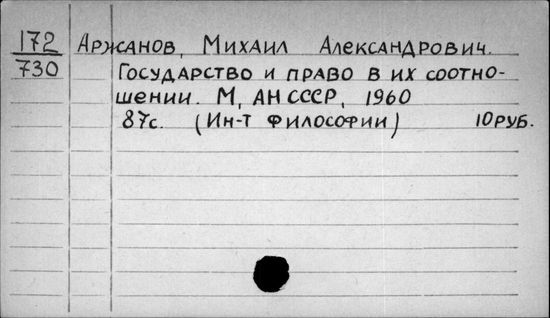 172 Аржанов, Михаил Александрович.
730 Государство и право в их соотно-
шении. М, АН СССР, 1960
87с. (Ин-т философии) 10 руб.